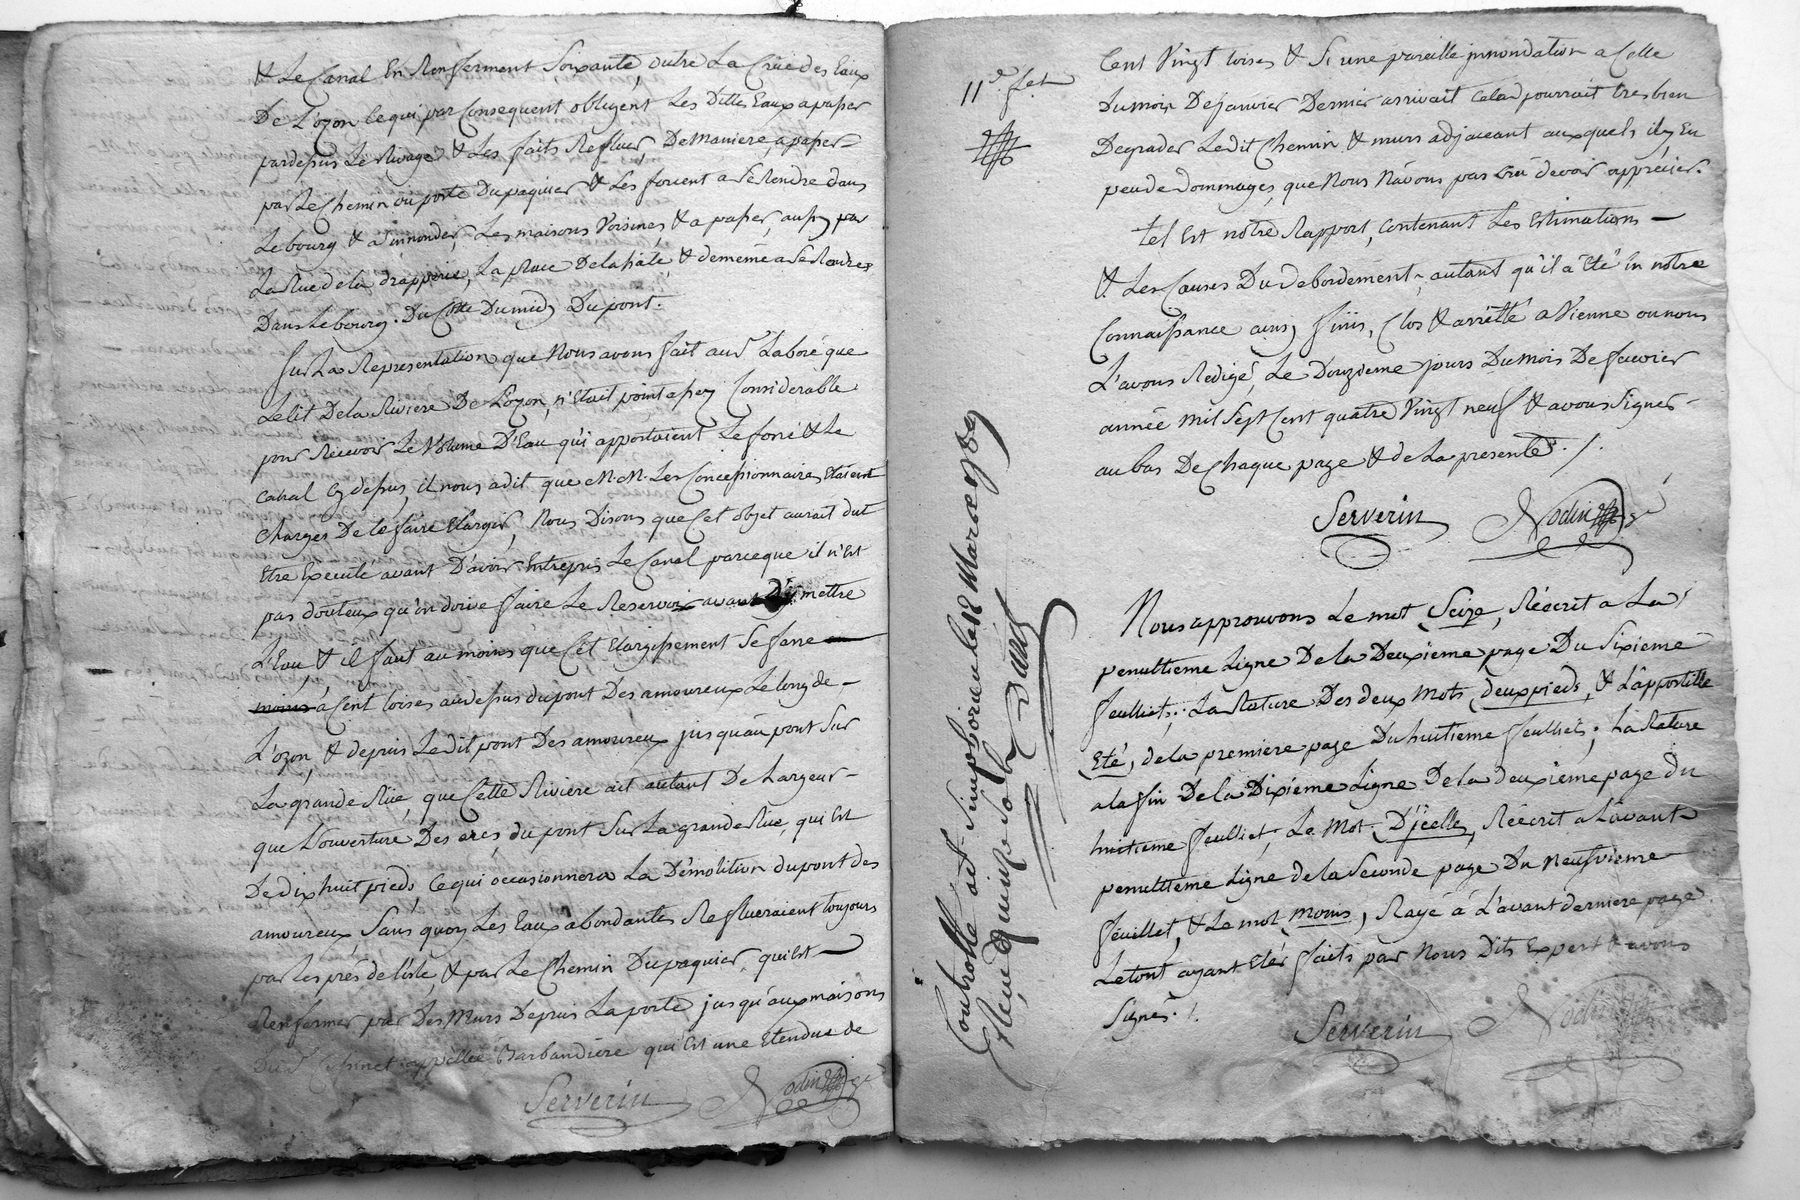 & Le Canal En Renferment Soixante, outre La Crüe des Eaux
De L'ozon ce qui par Consequent obligent Les Dittes Eaux a passer
par dessus Le Rivage & Les faits Refluer, De Maniere, a passer
par Le Chemin ou porte Du paquier & Les forcent a se Rendre dans
Le bourg & a innonder, Les maisons Voisines, & a passer, aussy par
La Rüe de la drapperie, La place De la hale & de méme a Se Rendre
Dans Le bourg. Du Côté Du midy Du pont.
Sur La Representation que Nous avons fait au Sr Laboré que
Le lit De la Riviere De L'ozon, n'etait point assez Considerable
pour Recevoir Le Volume D'Eau qui apportaient Le fossé & Le
Canal cy dessus, il nous a dit que M.M. Les Concessionnaires Etaient
Charges De le faire Elargir, Nous Disons que Cet objet aurait dut
Etre Executé avant D'avoir Entrepris Le Canal parceque il n'Est
pas douteux qu'on doive faire Le Reservoir avant D'y mettre
L'Eau & il faut au moins que Cet Elargissement Se fasse
moins à Cent toises au dessus du pont Des amoureux Le long de
L'ozon, & depuis Le dit pont Des amoureux jusqu'au pont Sur
La grande Rüe, que Cette Riviere ait autant De Largeur
que L'ouverture Des arcs, du pont Sur La grande Rue, qui Est
De dix huit pieds, Ce qui occasionnera La Démolition du pont des
amoureux Sans quoy Les Eaux abondantes Reflueraient toujours
par les prés de l'isle, & par Le Chemin Du paquier, qui Est
Renfermer par Des Murs Depuis La porte jusqu'aux maisons
Du Sr appellée Barbandiere qui Est une Etendue de
Serverin Nodin
11e. fet
Cent Vingt toises & Si une pareille innondation a Celle
Du mois De janvier Dernier arrivait Cela pourrait tres bien
Degrader Le dit Chemin & murs adjaceant auxquels il y En
peu de dommages, que Nous N'avons pas crû devoir apprécier.
tel Est notre Rapport, Contenant Les Estimations
& Les Causes Du Debordement, autant qu'il a Eté En notre
Connaissance ainsy finis, Clos & arretté a Vienne ou nous
L'avons Redigé, Le Douzieme jours Du mois De fevrier
année mil Sept Cent quatre Vingt neuf & avons Signer
au bas De Chaque page & de La presente ./.
Serverin Nodin
Nous approuvons Le mot Seize, Réecrit a La
penultieme Ligne De la Deuxieme page Du Sixieme
feuillet; La Rature Des deux Mots deux pieds, & L'apostille
Eté, de la premiere page Du huitieme feuillet; La Rature
a la fin De la Dixiéme Ligne De la deuxieme page du
huitieme feuillet, Le Mot D'jcelle, Réécrit a L'avant
penultieme Ligne de la Seconde page Du Neufvieme
feuillet, & Le mot moins, Rayé a L'avant derniere page
Le tout ayant Etér faits par Nous Dits Expert & avons
Signés ./.
Serverin Nodin
Controllé a St. Simphorien le 12 Mars 1789
Reçeu quinze sols